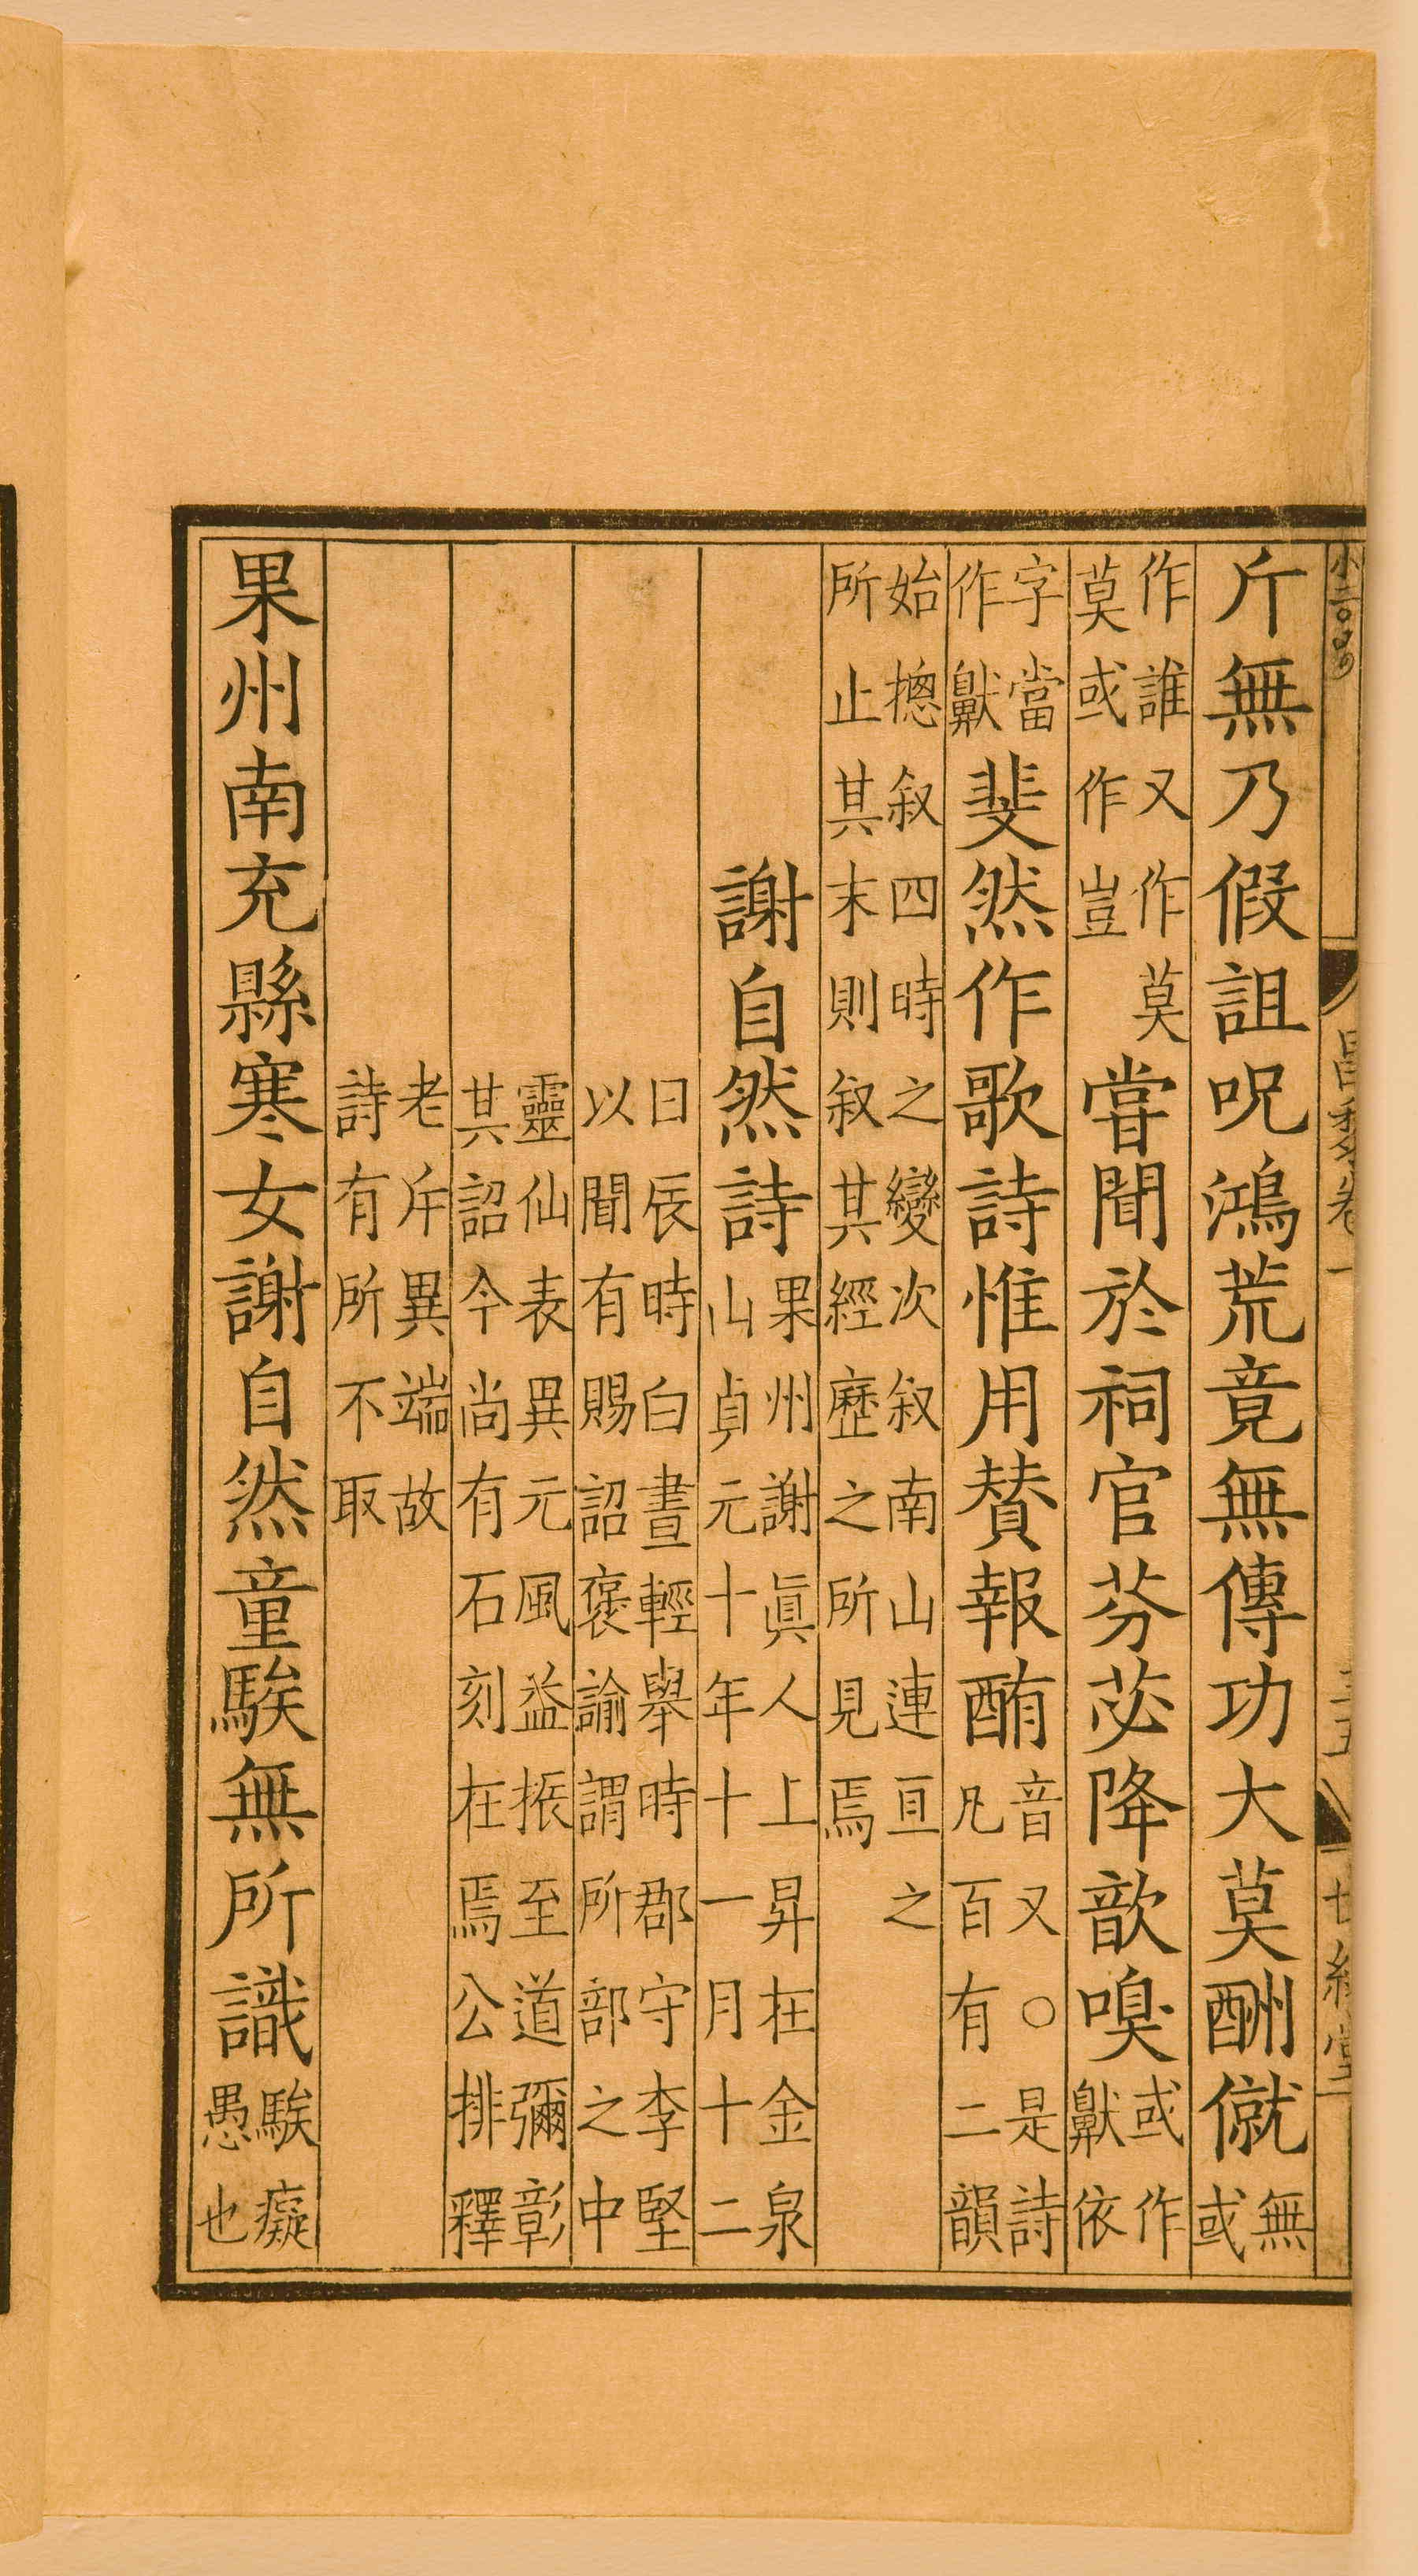 斤無乃假詛呪鴻荒竟無傳功大莫酬僦無或
作誰又作莫莫或作豈嘗聞於祠官芬苾降歆嗅或作䶈依
字當作䶈斐然作歌詩惟用贊報酭音又○是詩凡百有二韻
始摠叙四時之變次叙南山連亘之所止其末則叙其經歷之所見焉
謝自然詩果州謝眞人上昇在金泉山貞元十年十一月十二
日辰時白晝輕舉時郡守李堅以聞有賜詔褒諭謂所部之中
靈仙表異元風益振至道彌彰其詔今尚有石刻在焉公排釋
老斥異端故詩有所不取
果州南充縣寒女謝自然童騃無所識騃癡愚也